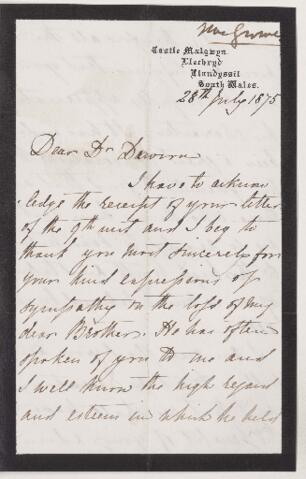 Castle Malgwyn
Llechryd
Llandyssil
South Wales.
28th July 1875
Dear Dr
I have to acknow
ledge the receipt of your letter
of the 9th inst and I beg to
thank you most sincerely for
your kind expressions of
sympathy in the loss of my
dear Brother. He has often
spoken of you to me and
I well know the high regard
and esteem in which he held